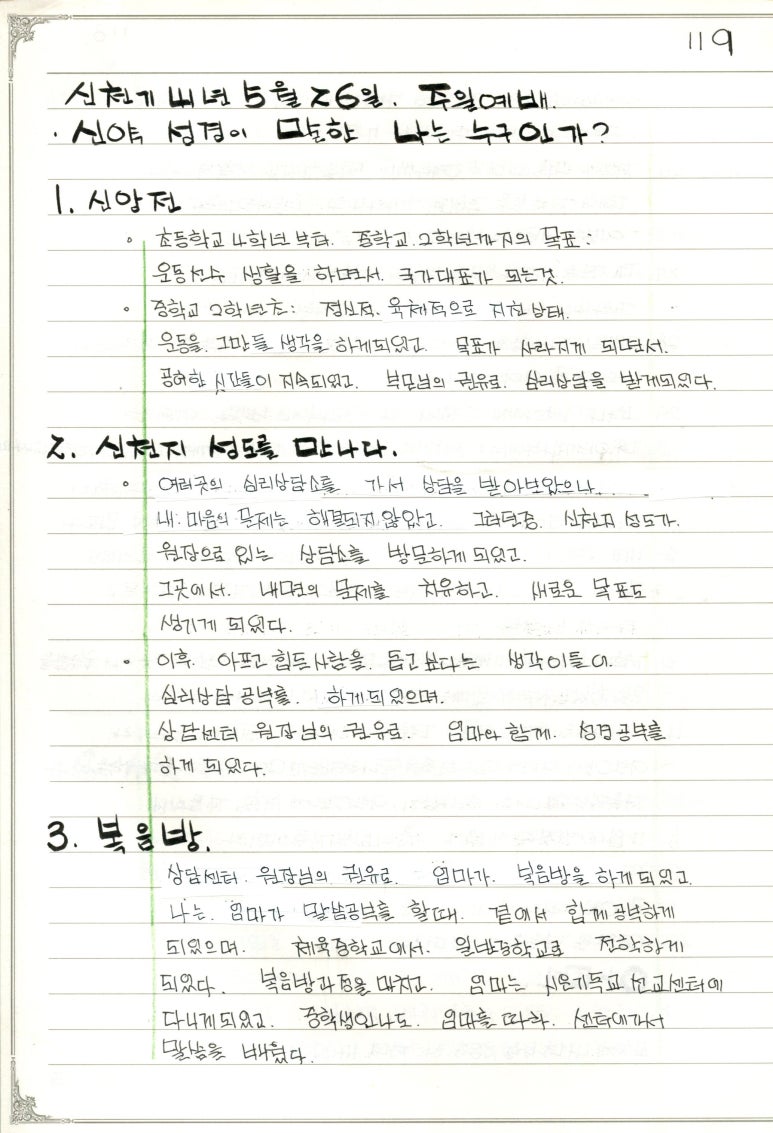 119
신천기 41년 5월 26일. 주일예배.
· 신약 성경이 말한 나는 누구인가?
1. 신앙 전
◦ 초등학교 4학년 부터. 중학교 2학년까지의 목표:
운동선수 생활을 하면서. 국가대표가 되는것.
◦ 중학교 2학년초: 정신적. 육체적으로 지친상태.
운동을. 그만둘 생각을 하게되었고. 목표가 사라지게 되면서.
공허한 시간들이 지속되었고. 부모님의 권유로. 심리상담을 받게되었다.
2. 신천지 성도를 만나다.
◦ 여러곳의 심리상담소를 가서 상담을 받아보았으나.
내 마음의 문제는 해결되지 않았고. 그러던중. 신천지 성도가.
원장으로 있는 상담소를 방문하게 되었고.
그곳에서. 내면의 문제를 치유하고. 새로운 목표도
생기게 되었다.
• 이후. 아프고 힘든사람을. 돕고싶다는 생각이들어.
심리상담 공부를. 하게되었으며.
상담센터 원장님의 권유로. 엄마와 함께. 성경공부를
하게 되었다.
3. 복음방.
상담센터. 원장님의. 권유로. 엄마가. 복음방을 하게되었고.
나는. 엄마가 말씀공부를 할때. 곁에서 함께공부하게
되었으며. 체육중학교에서. 일반중학교로 전학하게
되었다. 복음방과정을 마치고. 엄마는 시온기독교선교센터에
다니게되었고. 중학생인나도. 엄마를 따라. 센터에가서
말씀을 배웠다.